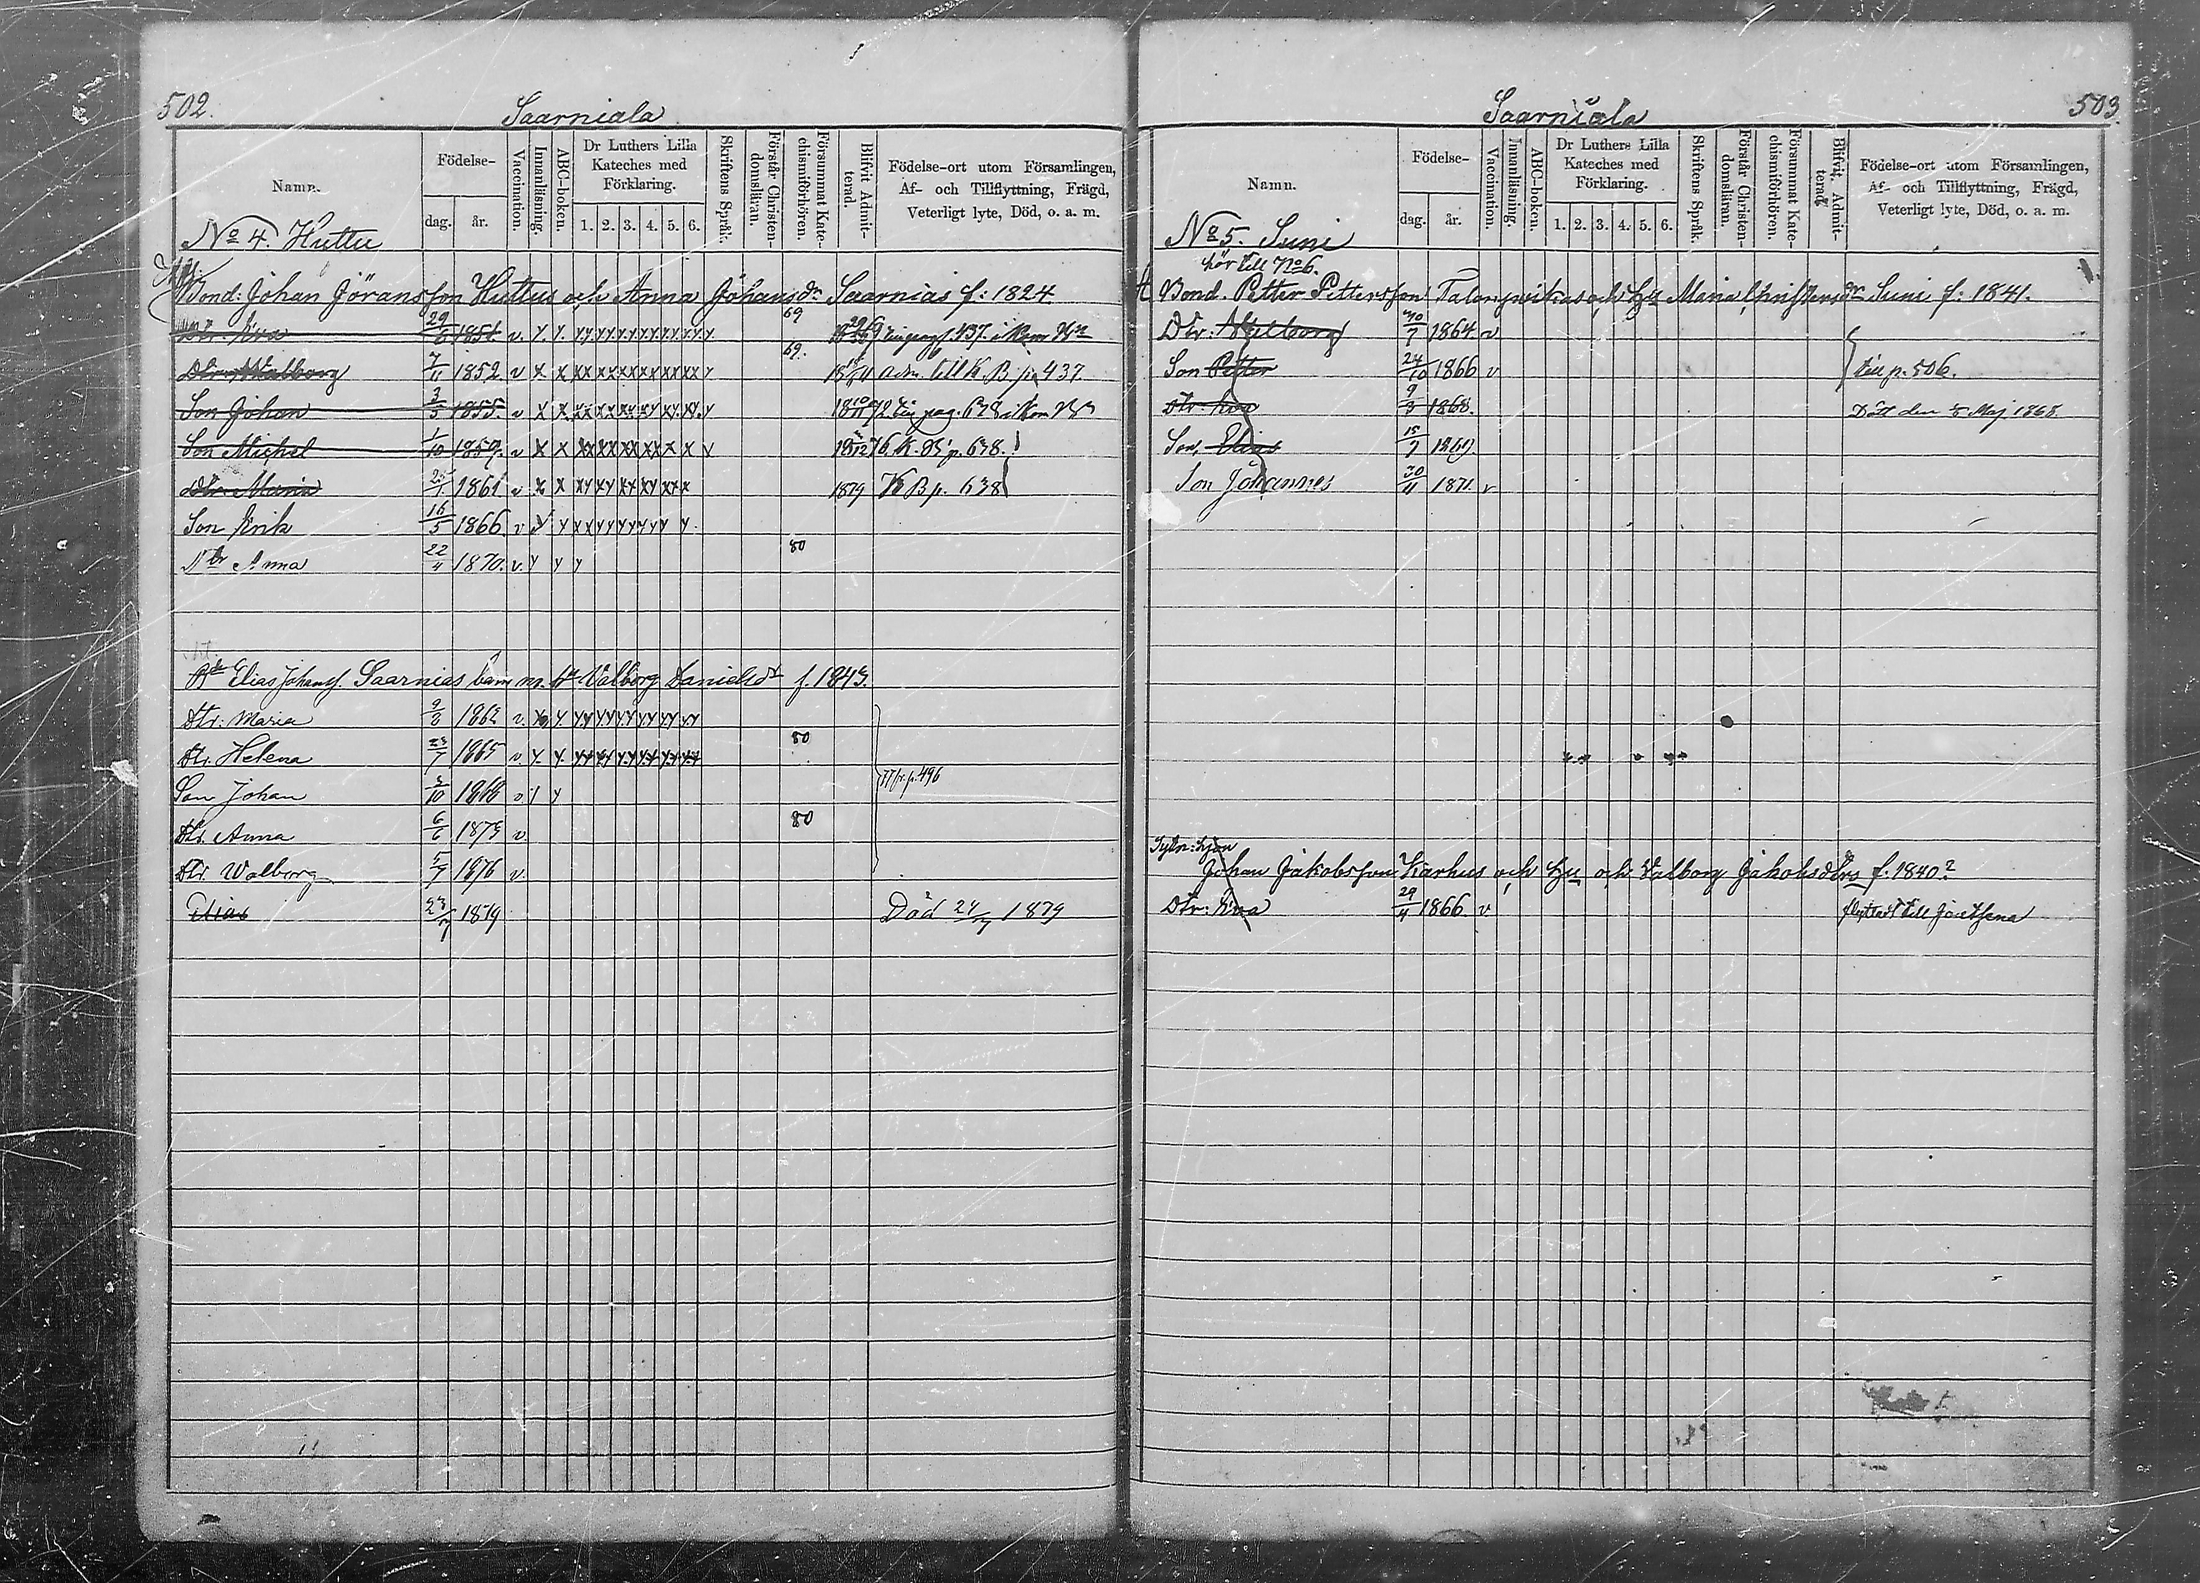 502.
Saarniala
Namn.
Födelse-
dag.
år.
Vaccination.
Innanläsning.
ABC-boken.
Dr Luthers Lilla Kateches med Förklaring.
1. 2. 3. 4. 5. 6.
Skriftens Språk.
Förstår Christendomsläran.
Försummat Katechismiförhören.
Blifvit Admitterad.
Födelse-ort utom Församlingen,
Af- och Tillflyttning, Frägd,
Veterligt lyte, Död, o. a. m.
No 4. Huttu
Bond. Johan Jöransson Huttus och Anna Johansdr Saarnias f: 1824
Dtr. Eva 29/6 1851 v. 69 p. 437. i Kom Bn
Dtr. Walborg 7/11 1852 v x x 69. adm. till K. B. p. 437.
Son Johan 3/5 1855. v x x pag. 638 i Kom Bn
Son Michel 1/10 1859. v x x K. B. p. 638.
Dtr Maria 1861 v x x 1879 K B p. 638
Son Erik 16/5 1866 v
Dtr Anna 22/4 1870. v. y y y 80
Elias Johans. Saarnias barn m. Valborg Danielsdr f. 1843.
Dtr. Maria 2/8 1862 v.
Dtr. Helena 23/7 1865 v. 80
fr. p. 496
Son Johan 3/10 1868 v y
Dtr. Anna 6/6 1873 v. 80
Dtr. Walborg 5/7 1876 v.
Elias 23/7 1879 Död 24/7 1879
503.
Saarniala
Namn.
Födelse-
dag.
år.
Vaccination.
Innanläsning.
ABC-boken.
Dr Luthers Lilla Kateches med Förklaring.
1. 2. 3. 4. 5. 6.
Skriftens Språk.
Förstår Christendomsläran.
Försummat Katechismiförhören.
Blifvit Admitterad.
Födelse-ort utom Församlingen,
Af- och Tillflyttning, Frägd,
Veterligt lyte, Död, o. a. m.
No 5. Suni
hör till No 6.
Bond. Petter Pettersson och Hu Maria Christensdr Suni f: 1841.
Dtr: 1864. v
Son Petter 24/10 1866 v till p. 506.
Dtr. Eva 9/3 1868. Död den 8 Maj 1868.
Son. Elias 15/7 1869.
Son Johannes 30/11 1871. v
Johan Jakobsson Karhus och Hu och Valborg Jakobsdtrs f. 1840?
Dtr: Eva 29/4 1866 v flyttat till